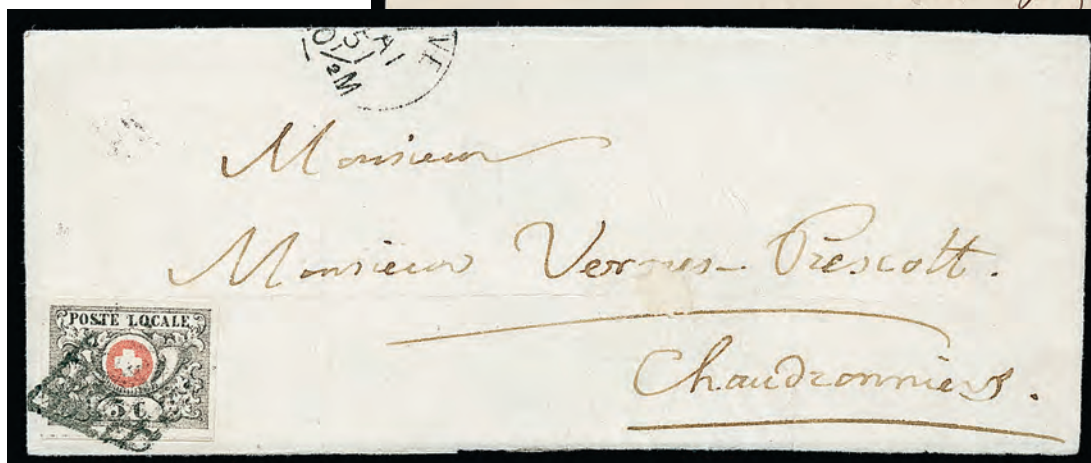 VE
AI
51
0½M
Monsieur
Monsieur Vernes-Prescott.
Chaudronniers.
POSTE LOCALE
5 C